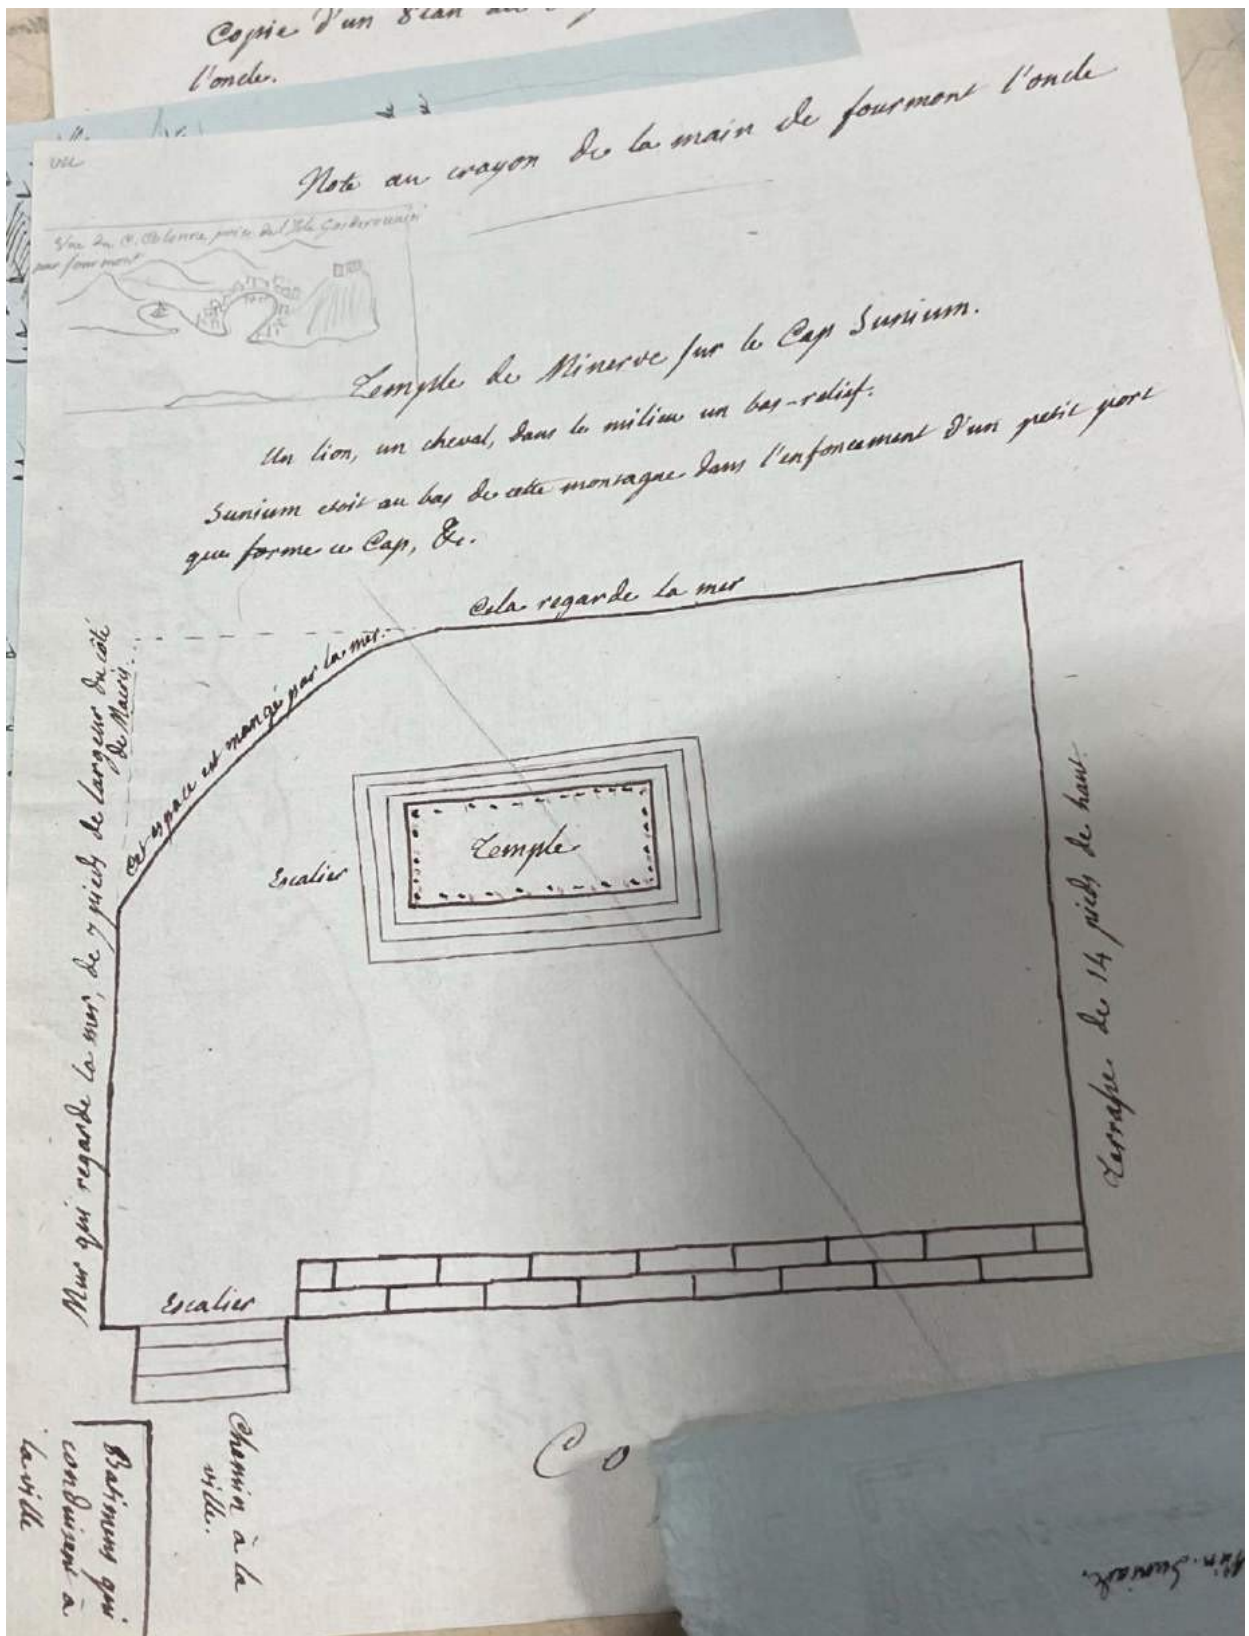 Copie d'un Plan
l'oncle.
vu
Note au crayon de la main de fourmont l'oncle
Vue du C. Colonne, prise de l'Isle
par fourmont
Temple de Minerve sur le Cap Sunium.
Un lion, un cheval, dans le milieu un bas-relief.
Sunium etoit au bas de cette montagne dans l'enfoncement d'un petit port
que forme ce Cap, &c.
Cela regarde la mer
Cet espace est mangé par la mer.
Mur qui regarde la mer, de 7 pieds de largeur du côté
de
Escalier
Temple
Terrasse de 14 pieds de haut.
Escalier
Chemin à la
ville.
Batimens qui
conduisent à
la ville
Co